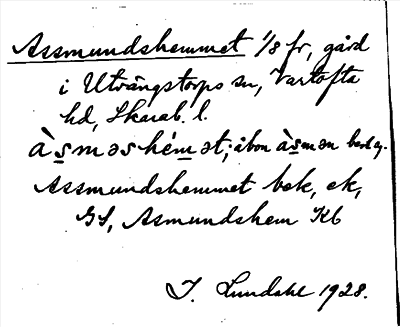 Assmundshemmet 1/8 fr, gård
i Utvängstorps sn, Vartofta
hd, Skarab. l.
às̱məshém̱ət; åbon às̱mən
Assmundshemmet bok, ek,
GS, Asmundshem Kb
J. Lundahl 1928.